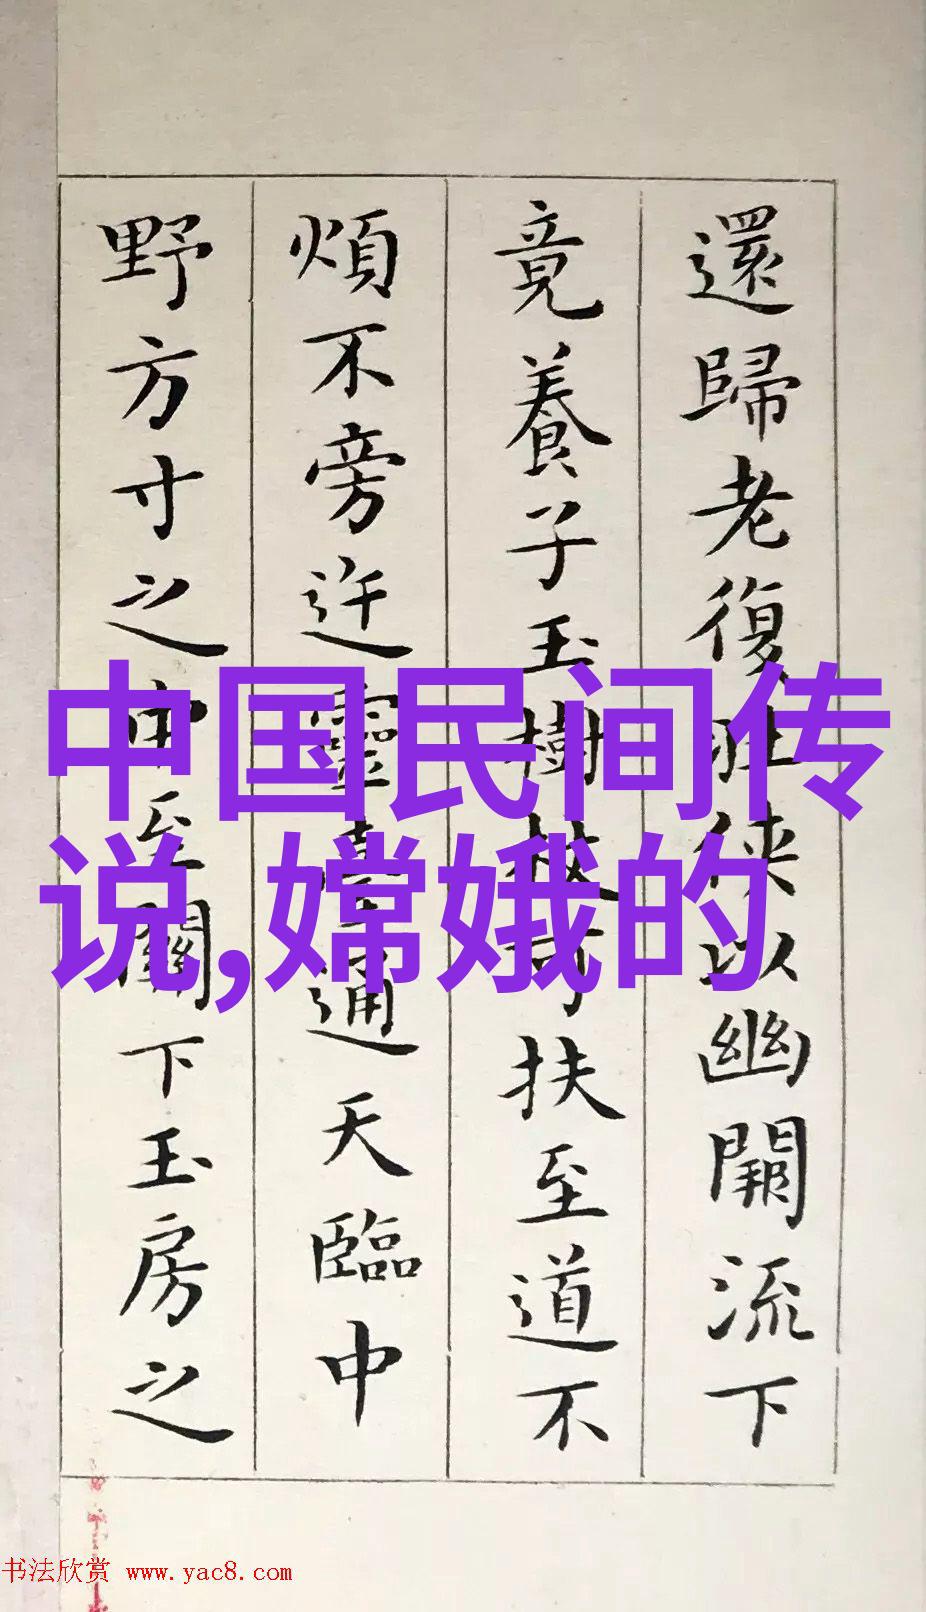 還歸老復壯俠以幽闕流下
竟養子玉樹杖可扶至道不
煩不旁迕靈臺通天臨中
野方寸之中至關下玉房之
中国民间传
说,嫦娥的
书法欣赏 www.yac8.com